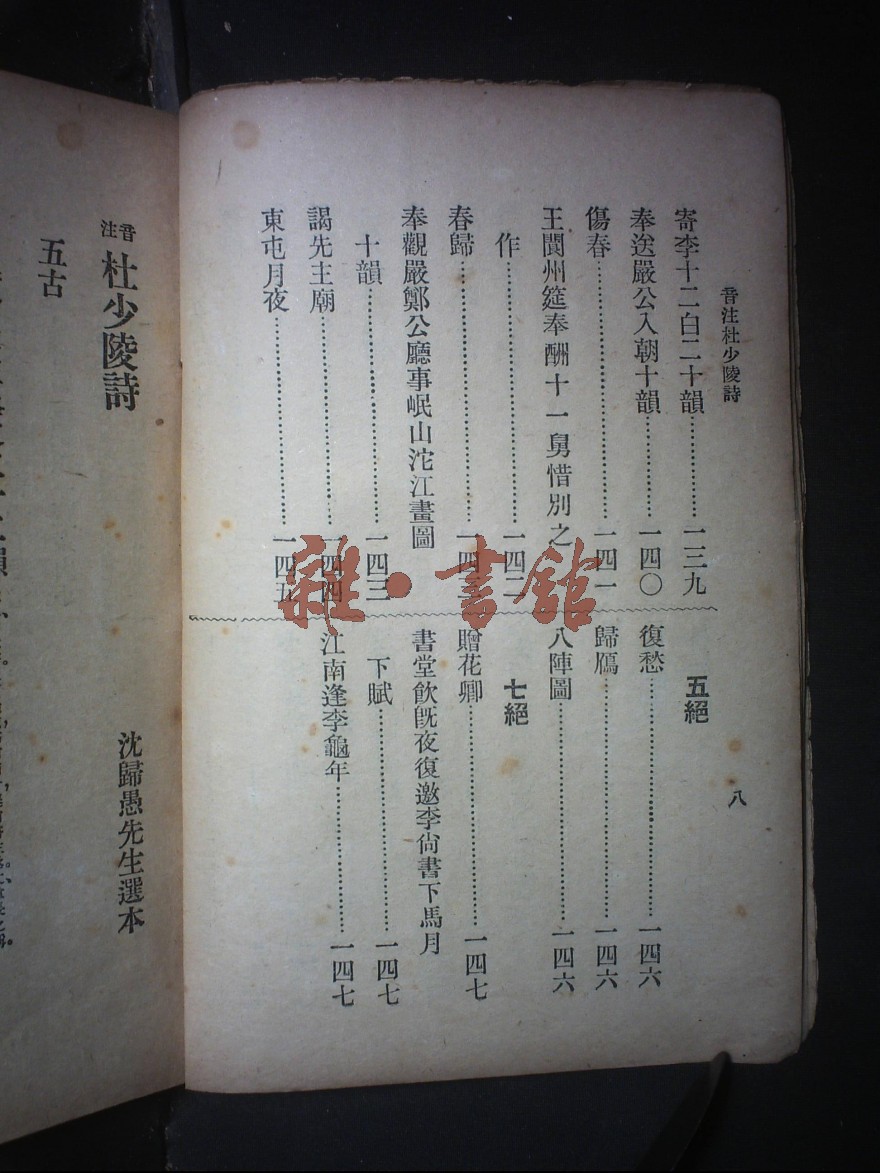 音注杜少陵詩
寄李十二白二十韻……一三九
奉送嚴公入朝十韻……一四〇
傷春……一四一
王閬州筵奉酬十一舅惜別之
作……一四二
春歸……一四二
奉觀嚴鄭公廳事岷山沱江畫圖
十韻……一四三
謁先主廟……一四四
東屯月夜……一四五
五絕
復愁……一四六
歸鴈……一四六
八陣圖……一四六
七絕
贈花卿……一四七
書堂飲既夜復邀李尙書下馬月
下賦……一四七
江南逢李龜年……一四七
八
雜·書館
音注 杜少陵詩
沈歸愚先生選本
五古